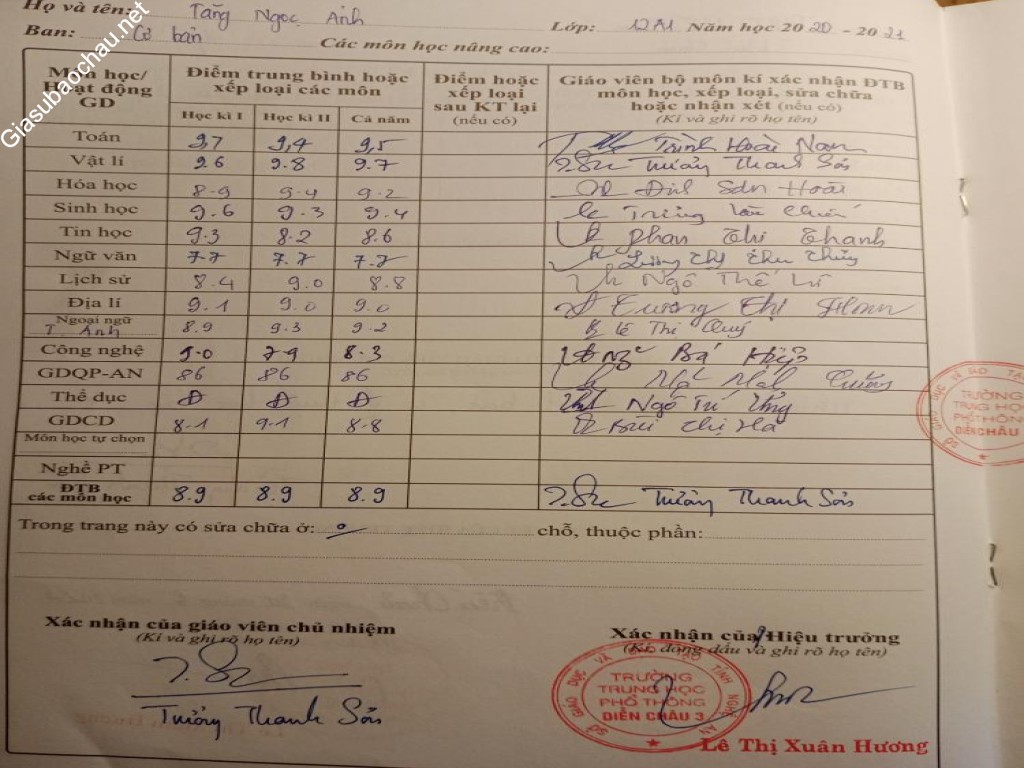 Giasubaochau.net
Họ và tên: Tăng Ngọc Ánh Lớp: 12A1 Năm học 2020 - 2021
Ban: Cơ bản Các môn học nâng cao:
Môn học/ Hoạt động GD Điểm trung bình hoặc xếp loại các môn Điểm hoặc xếp loại sau KT lại (nếu có) Giáo viên bộ môn kí xác nhận ĐTB môn học, xếp loại, sửa chữa hoặc nhận xét (nếu có) (Kí và ghi rõ họ tên)
Học kì I Học kì II Cả năm
Toán 9,7 9,4 9,5 Trịnh Hoài Nam
Vật lí 9.6 9.8 9.7 Thanh
Hóa học 8.9 9.4 9.2 Hoài
Sinh học 9.6 9.3 9.4
Tin học 9.3 8.2 8.6 Phan Thị Thanh
Ngữ văn 7.7 7.7 7.7 Thị Thu Thủy
Lịch sử 8.4 9.0 8.8 Ngô Thế
Địa lí 9.1 9.0 9.0 Thị
Ngoại ngữ T. Anh 8.9 9.3 9.2 Lê Thị Quý
Công nghệ 9.0 7.9 8.3 Bá Hiệp
GDQP-AN 86 86 86
Thể dục Đ Đ Đ Ngô Trí
GDCD 8.1 9.1 8.8 Bùi Thị Hà
Môn học tự chọn
Nghề PT
ĐTB các môn học 8.9 8.9 8.9 Thanh
Trong trang này có sửa chữa ở: 0 chỗ, thuộc phần:
Xác nhận của giáo viên chủ nhiệm
(Kí và ghi rõ họ tên)
Thanh
Xác nhận của Hiệu trưởng
(Kí, đóng dấu và ghi rõ họ tên)
SỞ GIÁO DỤC VÀ ĐÀO TẠO TỈNH NGHỆ AN
TRƯỜNG
TRUNG HỌC
PHỔ THÔNG
DIỄN CHÂU 3
Lê Thị Xuân Hương
TRƯỜNG
TRUNG HỌC
PHỔ THÔNG
DIỄN CHÂU